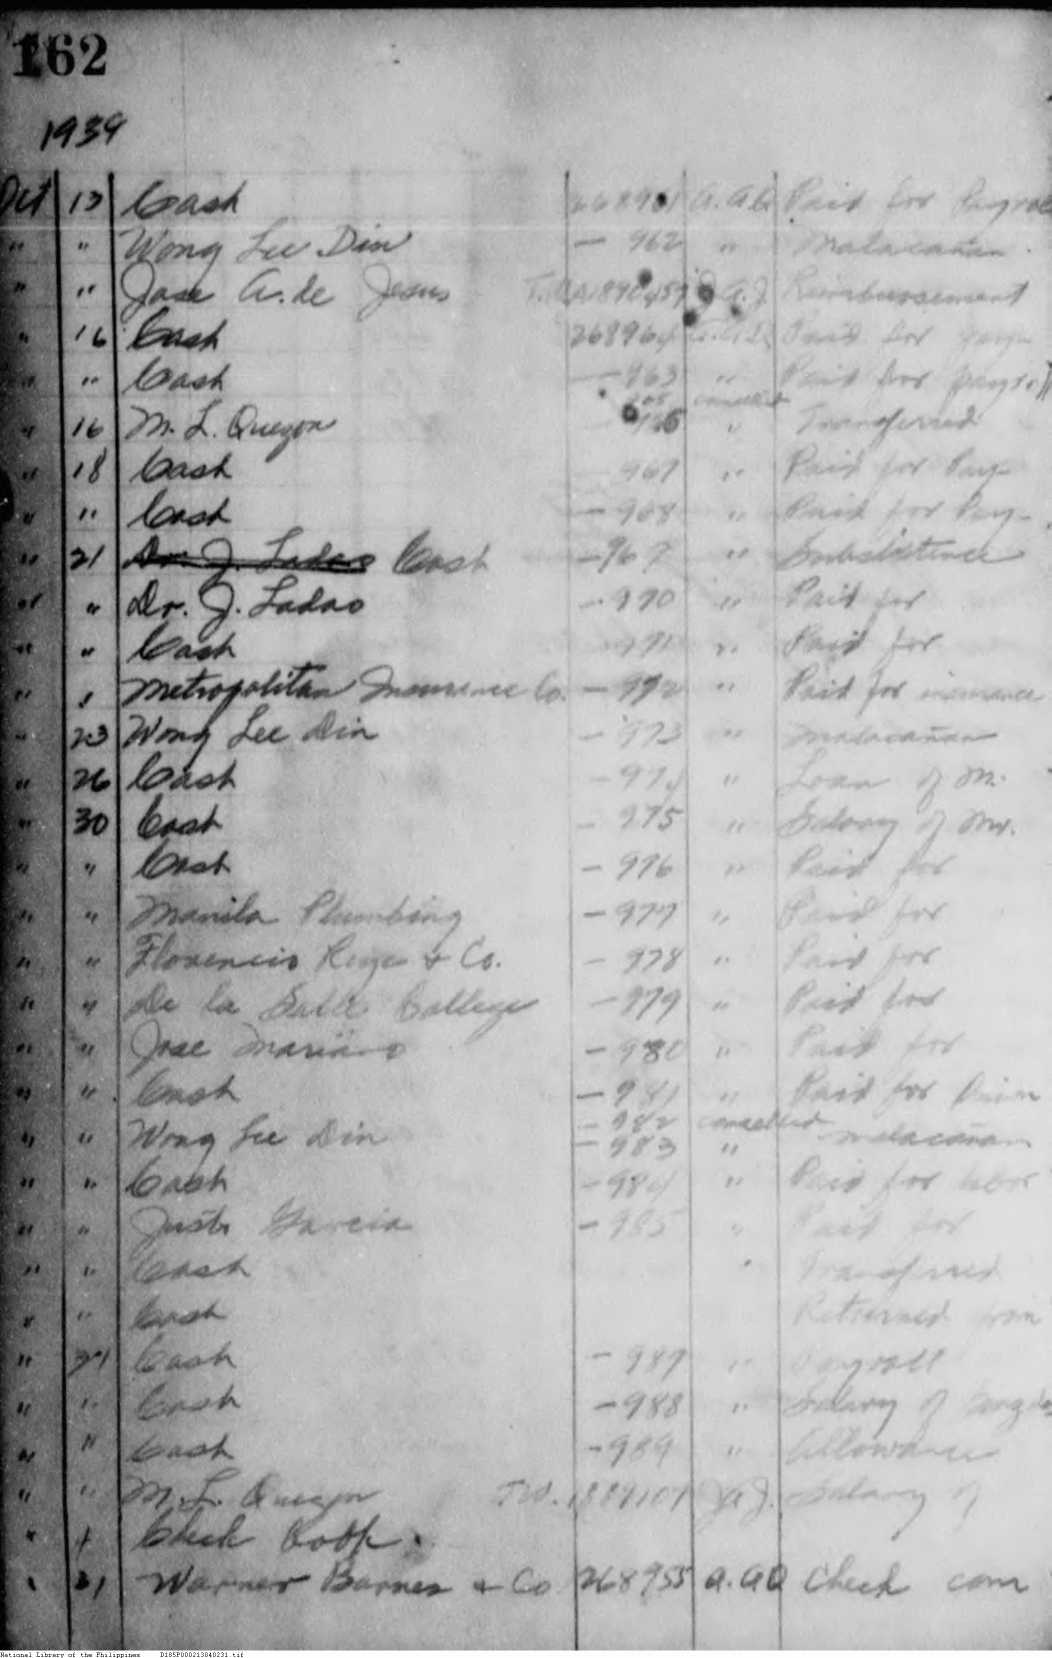 162
1939
Oct 13 Cash 268961 A.A.Q Paid for Payroll
" " Wong Lee Din — 962 " Malacañan
" " Jose A. de Jesus J.A.J. Reimbursement
" 16 Cash 268964 A.A.Q Paid for pay-
" " Cash — 963 " Paid for payroll
cancelled
" 16 M. L. Quezon " Transferred
" 18 Cash — 967 " Paid for Pay-
" " Cash — 968 " Paid for Pay-
" 21 Dr. J. Ladao Cash — 969 " Subsistence
" " Dr. J. Ladao — 970 " Paid for
" " Cash — 971 " Paid for
" " Metropolitan Insurance Co. — 972 " Paid for insurance
" 23 Wong Lee Din — 973 " Malacañan
" 26 Cash — 974 " Loan of M.
" 30 Cash — 975 " Salary of Mr.
" " Cash — 976 " Paid for
" " Manila Plumbing — 977 " Paid for
" " Florencio Reyes & Co. — 978 " Paid for
" " De la Salle College — 979 " Paid for
" " Jose Mariano — 980 " Paid for
" " Cash — 981 " Paid for
— 982 cancelled
" " Wong Lee Din — 983 " Malacañan
" " Cash — 984 " Paid for labor
" " Justo Garcia — 985 " Paid for
" " Cash " Transferred
" " Cash Returned from
" 31 Cash — 987 " Payroll
" " Cash — 988 " Salary of
" " Cash — 989 " Allowance
" " M. L. Quezon T.W. 1889107 J.A.J. Salary of
" " Check Book.
" 31 Warner Barnes & Co 268955 A.A.Q Check com
National Library of the Philippines D185P000213040231.tif